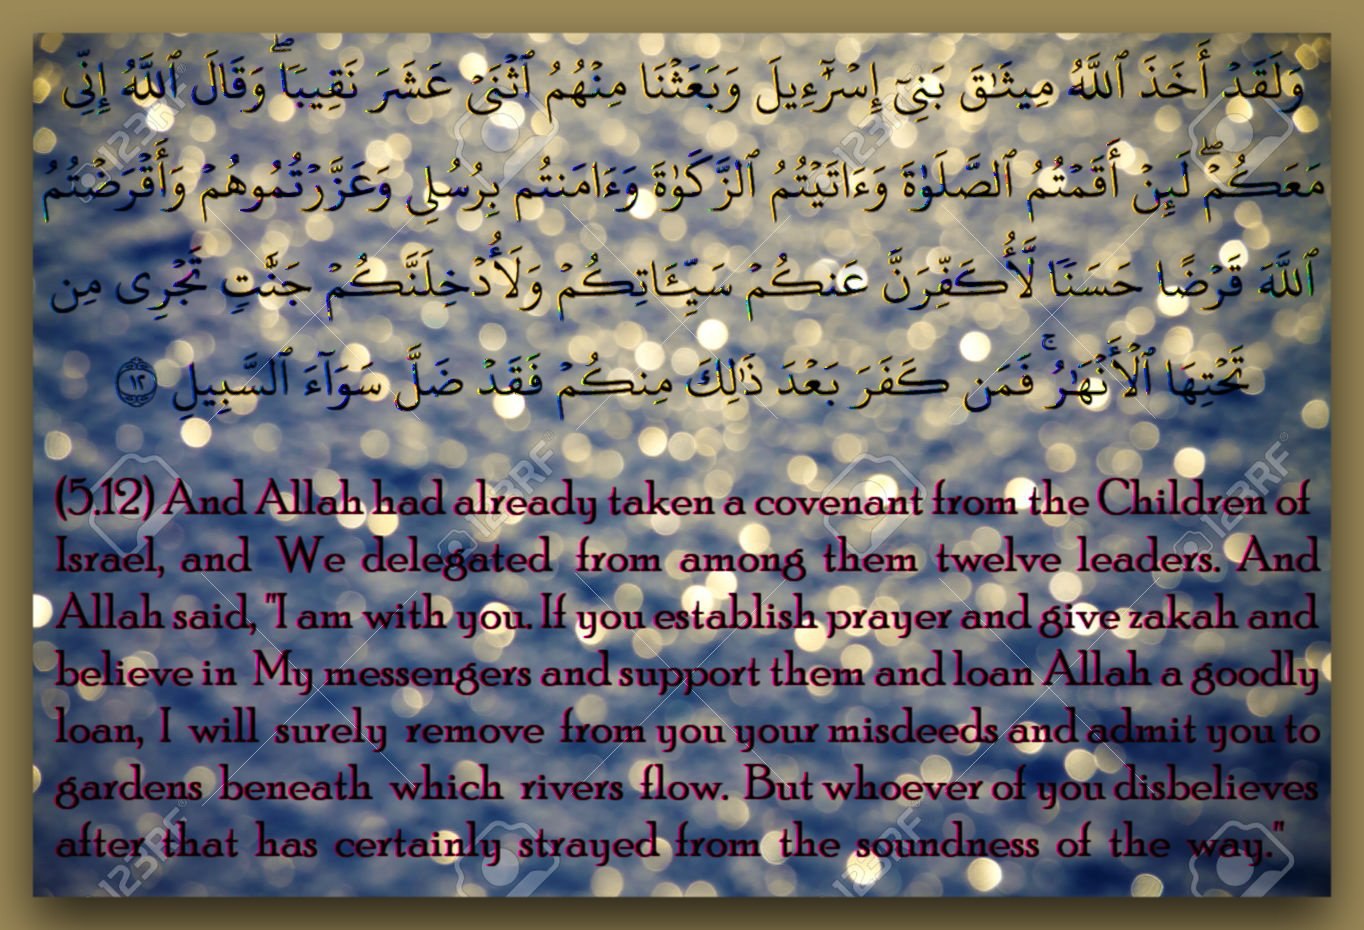 وَلَقَدْ أَخَذَ ٱللَّهُ مِيثَٰقَ بَنِىٓ إِسْرَٰٓءِيلَ وَبَعَثْنَا مِنْهُمُ ٱثْنَىْ عَشَرَ نَقِيبًا ۖ وَقَالَ ٱللَّهُ إِنِّى
مَعَكُمْ ۖ لَئِنْ أَقَمْتُمُ ٱلصَّلَوٰةَ وَءَاتَيْتُمُ ٱلزَّكَوٰةَ وَءَامَنتُم بِرُسُلِى وَعَزَّرْتُمُوهُمْ وَأَقْرَضْتُمُ
ٱللَّهَ قَرْضًا حَسَنًا لَّأُكَفِّرَنَّ عَنكُمْ سَيِّـَٔاتِكُمْ وَلَأُدْخِلَنَّكُمْ جَنَّٰتٍ تَجْرِى مِن
تَحْتِهَا ٱلْأَنْهَٰرُ ۚ فَمَن كَفَرَ بَعْدَ ذَٰلِكَ مِنكُمْ فَقَدْ ضَلَّ سَوَآءَ ٱلسَّبِيلِ ١٢
(5.12) And Allah had already taken a covenant from the Children of
Israel, and We delegated from among them twelve leaders. And
Allah said, "I am with you. If you establish prayer and give zakah and
believe in My messengers and support them and loan Allah a goodly
loan, I will surely remove from you your misdeeds and admit you to
gardens beneath which rivers flow. But whoever of you disbelieves
after that has certainly strayed from the soundness of the way."
123RF